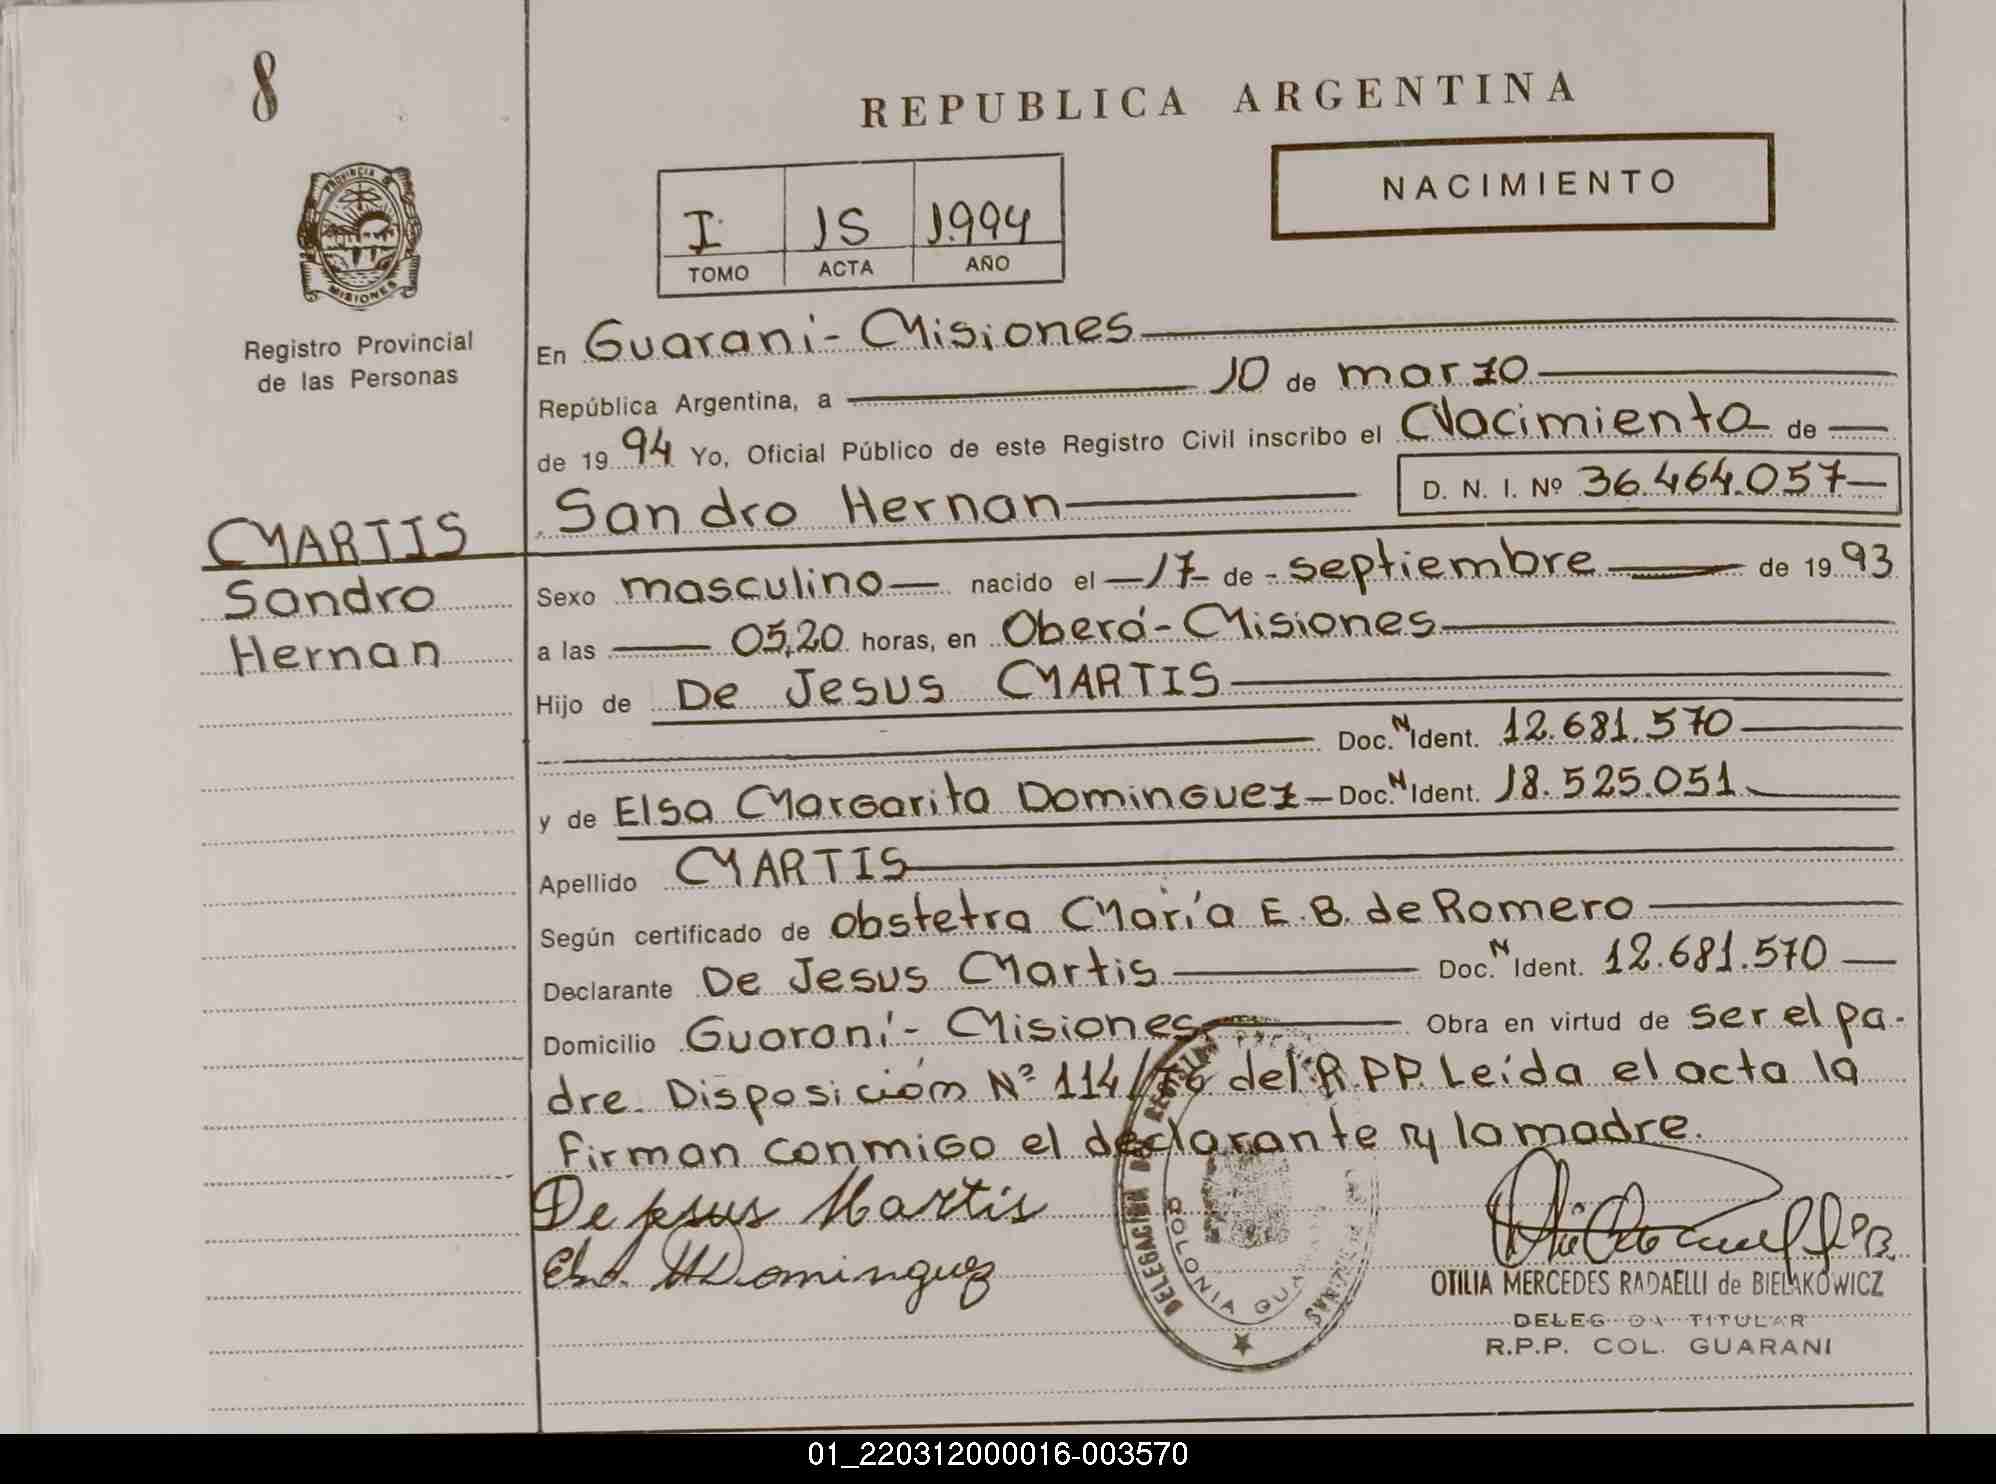 8
REPUBLICA ARGENTINA
NACIMIENTO
I 15 1.994
TOMO ACTA AÑO
PROVINCIA DE
MISIONES
Registro Provincial
de las Personas
En Guaraní - Misiones
República Argentina, a 10 de marzo
de 1994 Yo, Oficial Público de este Registro Civil inscribo el Nacimiento de
Sandro Hernan D. N. I. Nº 36.464.057
MARTIS
Sandro
Hernan
Sexo masculino nacido el 17 de septiembre de 1993
a las 05,20 horas, en Oberá - Misiones
Hijo de De Jesus MARTIS
Doc. N Ident. 12.681.570
y de Elsa Margarita Dominguez Doc. N Ident. 18.525.051
Apellido MARTIS
Según certificado de obstetra María E. B. de Romero
Declarante De Jesus Martis Doc. N Ident. 12.681.570
Domicilio Guaraní - Misiones Obra en virtud de ser el pa-
dre. Disposición Nº 114/ del R.P.P. Leída el acta la
firman conmigo el declarante y la madre.
De Jesus Martis
Elsa M Dominguez
DELEGACIÓN DE REGISTRO
COLONIA GUARANI
OTILIA MERCEDES RADAELLI de BIELAKOWICZ
DELEGADA TITULAR
R.P.P. COL. GUARANI
01_220312000016-003570